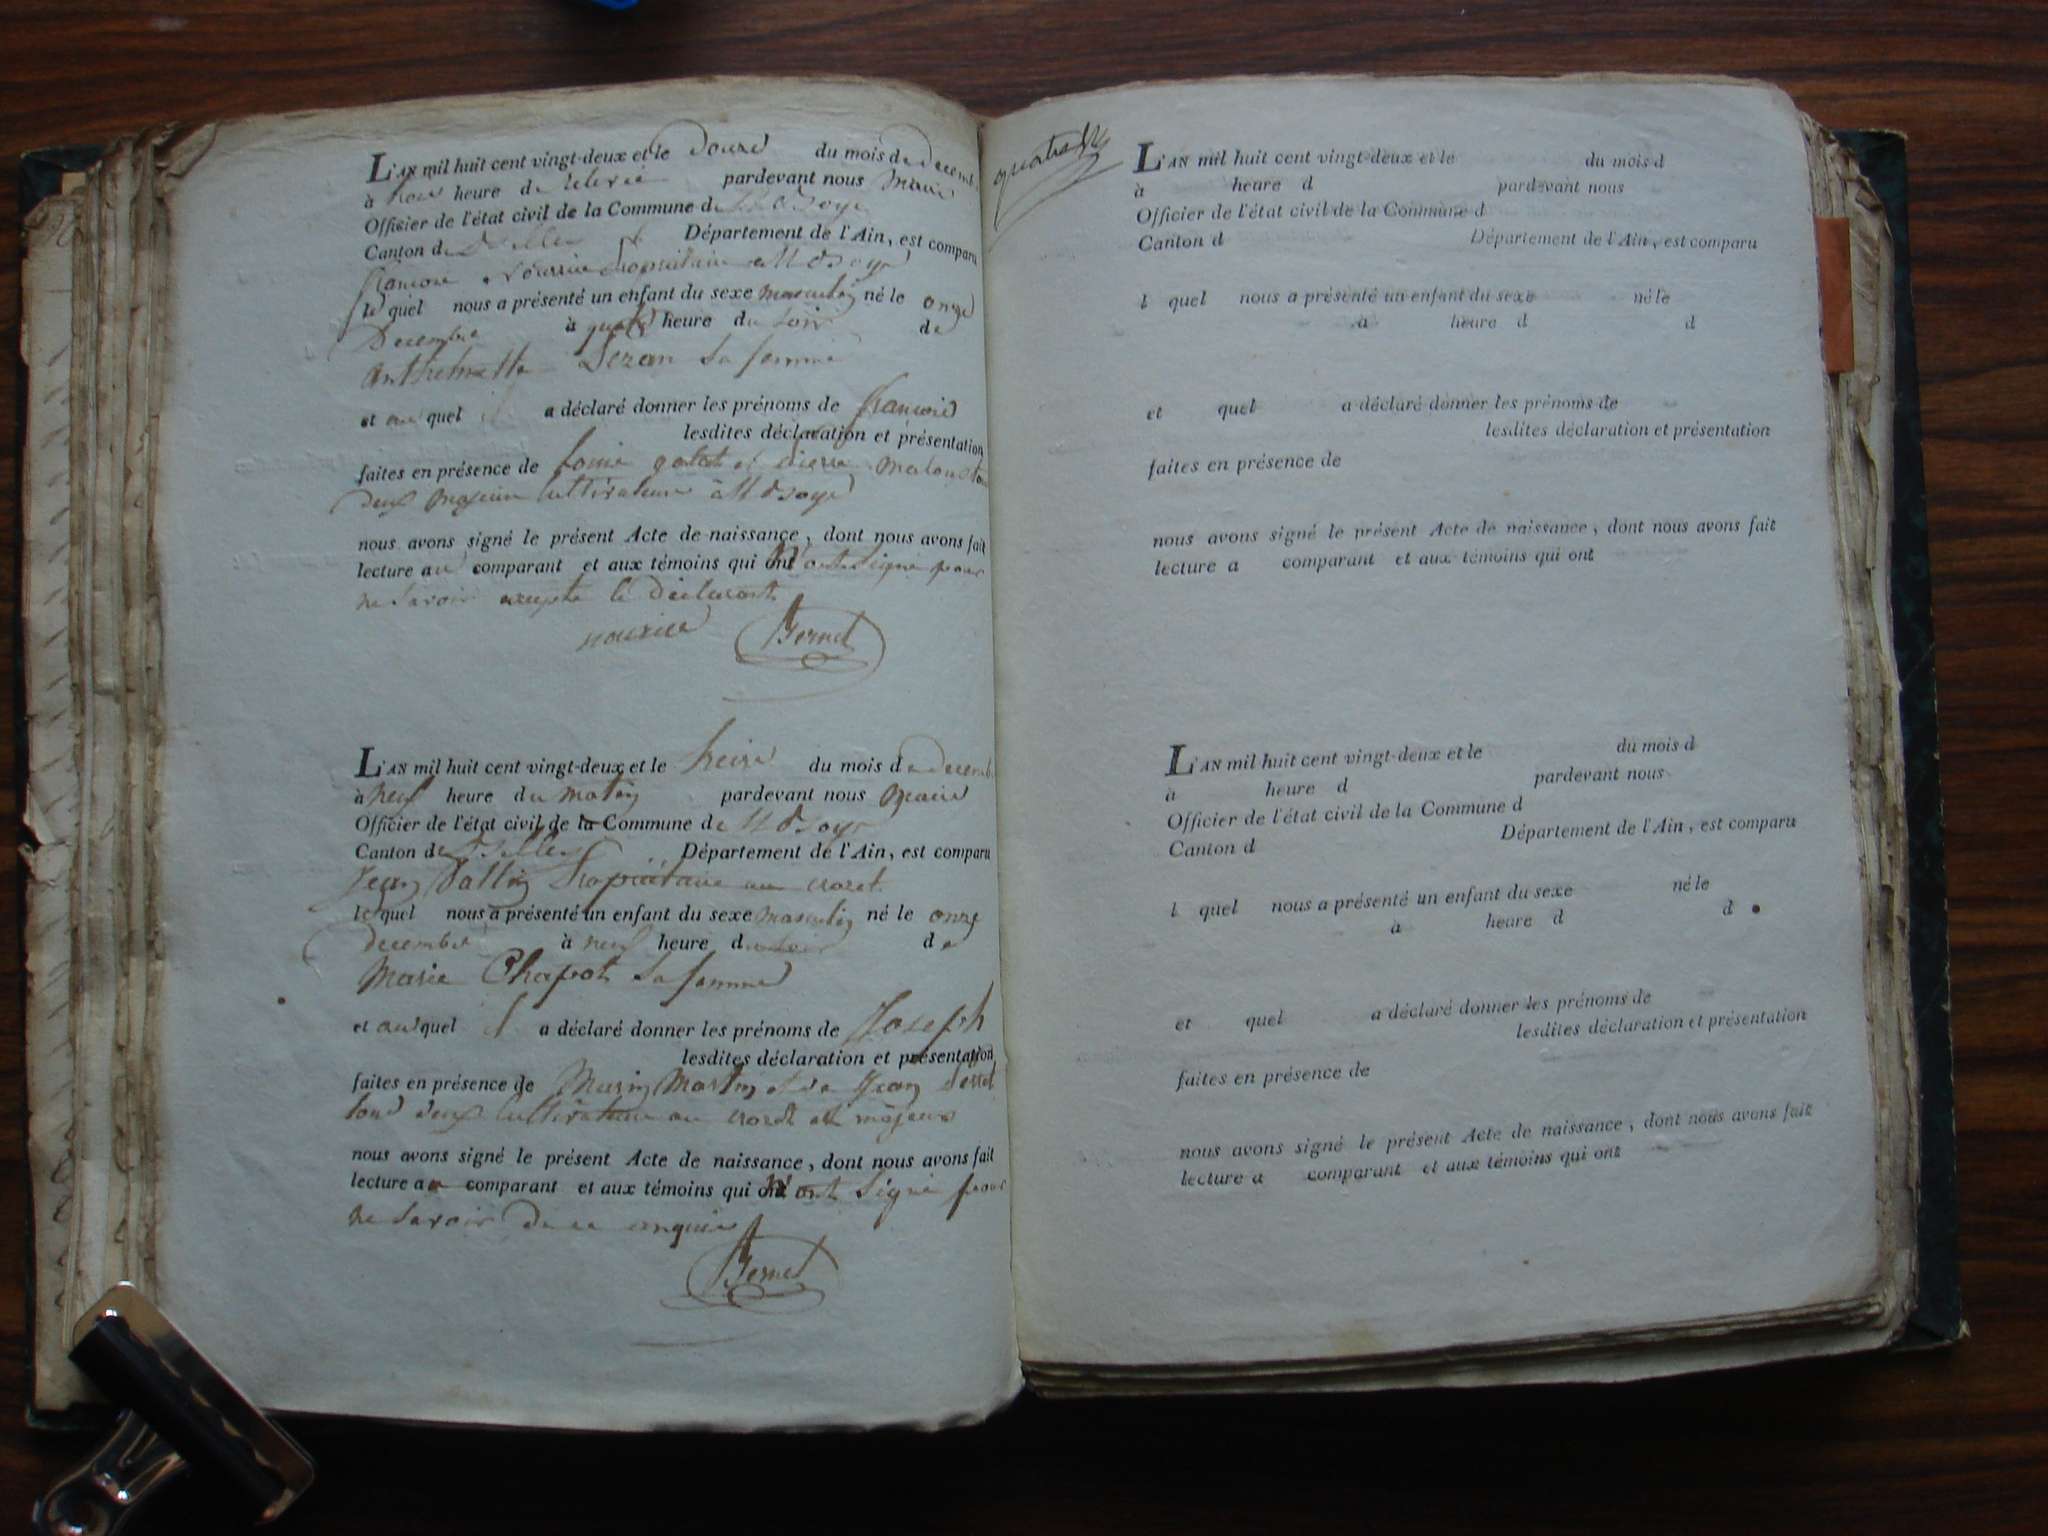 L'AN mil huit cent vingt-deux et le douze du mois de decembre
à heure de pardevant nous Maire
Officier de l'état civil de la Commune de
Canton de Département de l'Ain, est comparu
françois propriétaire
le quel nous a présenté un enfant du sexe masculin né le onze
Decembre à quatre heure du soir de
anthelmette sa femme
et au quel il a déclaré donner les prénoms de françois
lesdites déclaration et présentation
faites en présence de et pierre
deux majeur Cultivateurs à
nous avons signé le présent Acte de naissance, dont nous avons fait
lecture au comparant et aux témoins qui n'ont signé pour
ne savoir excepté le Déclarant
Bernet
L'AN mil huit cent vingt-deux et le treize du mois de decembre
à neuf heure du matin pardevant nous Maire
Officier de l'état civil de la Commune de
Canton de Département de l'Ain, est comparu
Jean propriétaire au crozet
le quel nous a présenté un enfant du sexe masculin né le onze
decembre à neuf heure du de
Marie Chapot sa femme
et au quel il a déclaré donner les prénoms de Joseph
lesdites déclaration et présentation
faites en présence de Marin Martin et de Jean
tous deux Cultivateur au et majeurs
nous avons signé le présent Acte de naissance, dont nous avons fait
lecture au comparant et aux témoins qui n'ont signé pour
ne savoir de ce enquis
Bernet
L'AN mil huit cent vingt-deux et le du mois d
à heure d pardevant nous
Officier de l'état civil de la Commune d
Canton d Département de l'Ain, est comparu
l quel nous a présenté un enfant du sexe né le
à heure d d
et quel a déclaré donner les prénoms de
lesdites déclaration et présentation
faites en présence de
nous avons signé le présent Acte de naissance, dont nous avons fait
lecture a comparant et aux témoins qui ont
L'AN mil huit cent vingt-deux et le du mois d
à heure d pardevant nous
Officier de l'état civil de la Commune d
Canton d Département de l'Ain, est comparu
l quel nous a présenté un enfant du sexe né le
à heure d d
et quel a déclaré donner les prénoms de
lesdites déclaration et présentation
faites en présence de
nous avons signé le présent Acte de naissance, dont nous avons fait
lecture a comparant et aux témoins qui ont